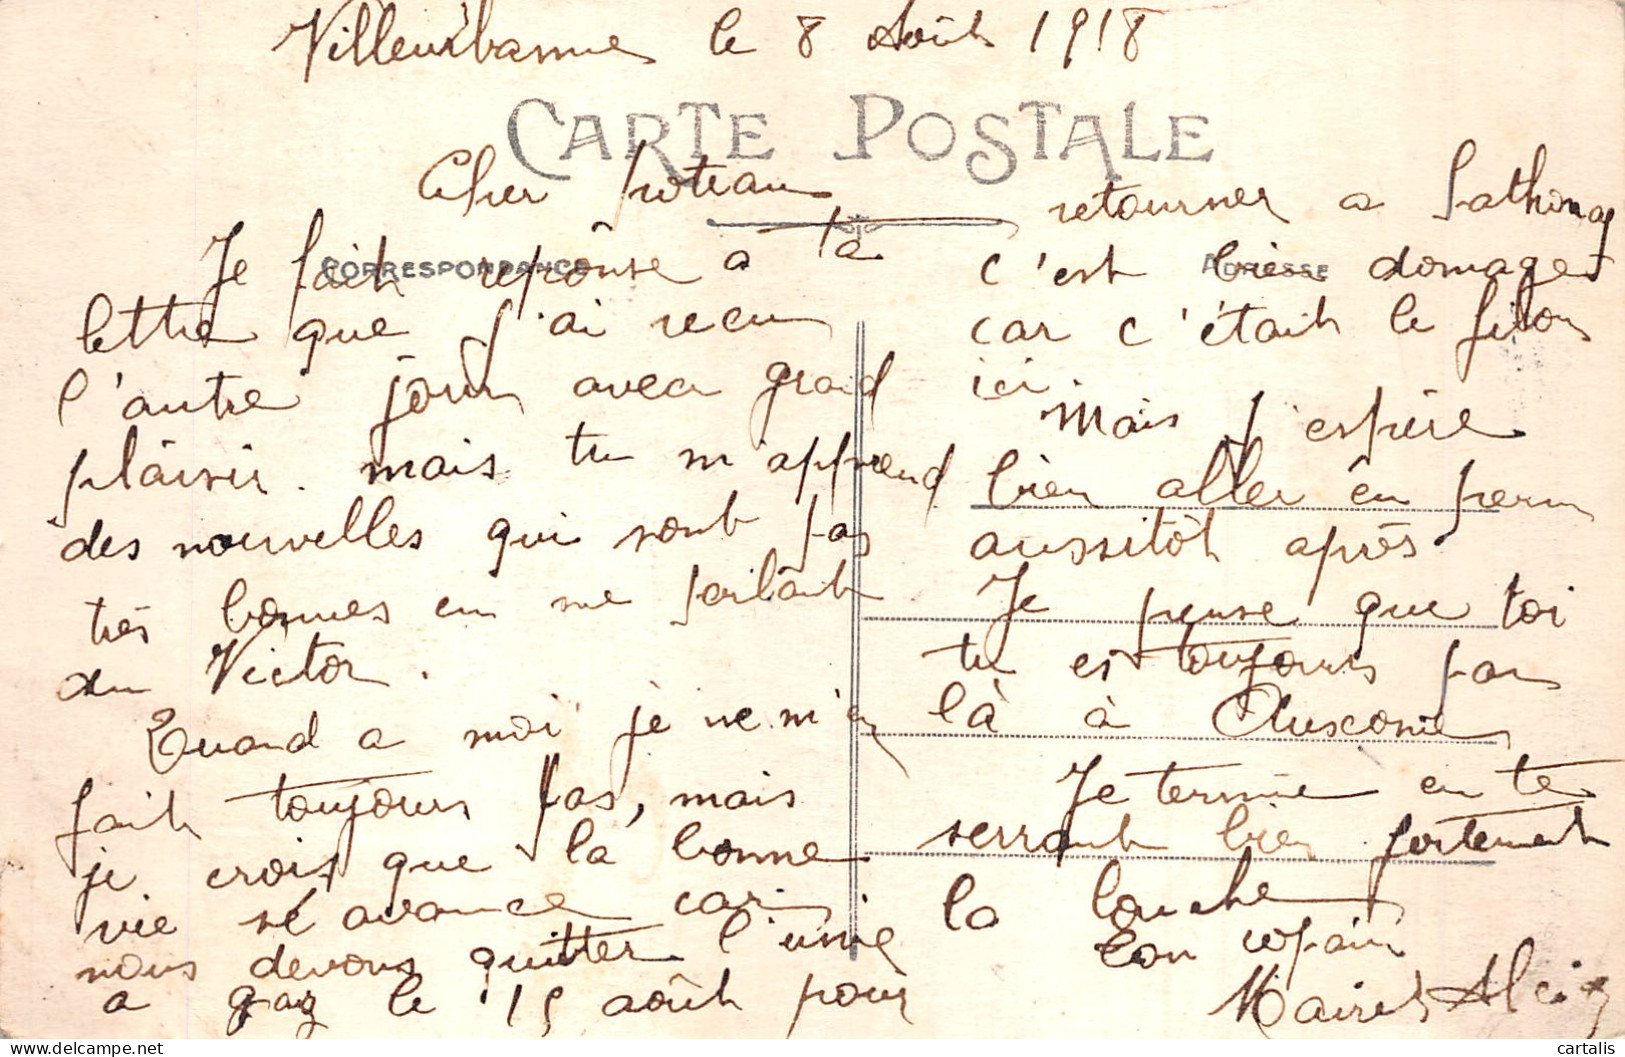 Villeurbanne le 8 Août 1918
CARTE POSTALE
CORRESPONDANCE
ADRESSE
Cher
Je fait repônse a ta
lettre que j'ai recu
l'autre jour avec grand
plâisir. mais tu m'apprend
des nouvelles qui sont pas
très bonnes en me parlânt
du Victor.
Quand a moi je ne m'en
fait toujours pas, mais
je crois que la bonne
vie sé avance car
nous devons quitter l'usine
a gaz le 15 août pour
retourner a Sathonay
c'est bien domage
car c'était le filon
ici.
Mais j'espére
bien aller en perm
aussitôt après.
Je pense que toi
tu es toujours par
là à
Je termine en te
serrant bien fortement
la louche
Ton copain
cartalis